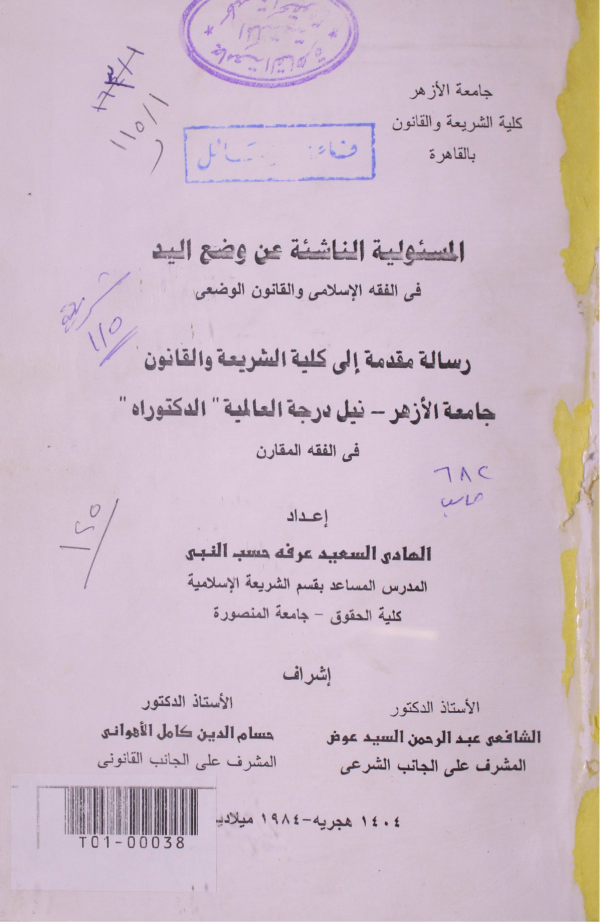 جامعة الأزهر
كلية الشريعة والقانون
بالقاهرة
١١٥/١
المسئولية الناشئة عن وضع اليد
فى الفقه الإسلامى والقانون الوضعى
١١٥
رسالة مقدمة إلى كلية الشريعة والقانون
جامعة الأزهر - نيل درجة العالمية " الدكتوراه "
فى الفقه المقارن
٦٨٢
إعداد
الهادى السعيد عرفه حسب النبى
المدرس المساعد بقسم الشريعة الإسلامية
كلية الحقوق - جامعة المنصورة
إشراف
الأستاذ الدكتور
الشافعى عبد الرحمن السيد عوض
المشرف على الجانب الشرعى
الأستاذ الدكتور
حسام الدين كامل الأهوانى
المشرف على الجانب القانونى
١٤٠٤ هجريه - ١٩٨٤ ميلاديه
T01-00038